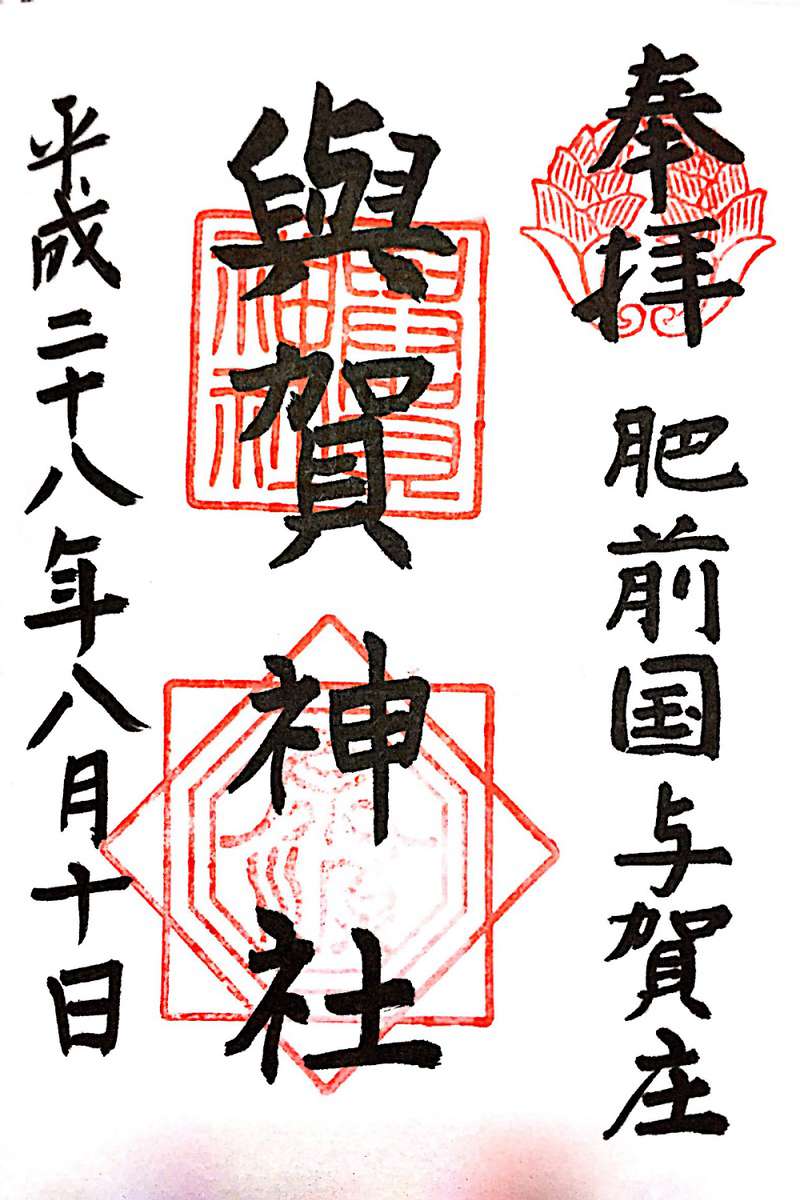 奉拝 肥前国与賀庄
與賀神社
平成二十八年八月十日
與賀神社